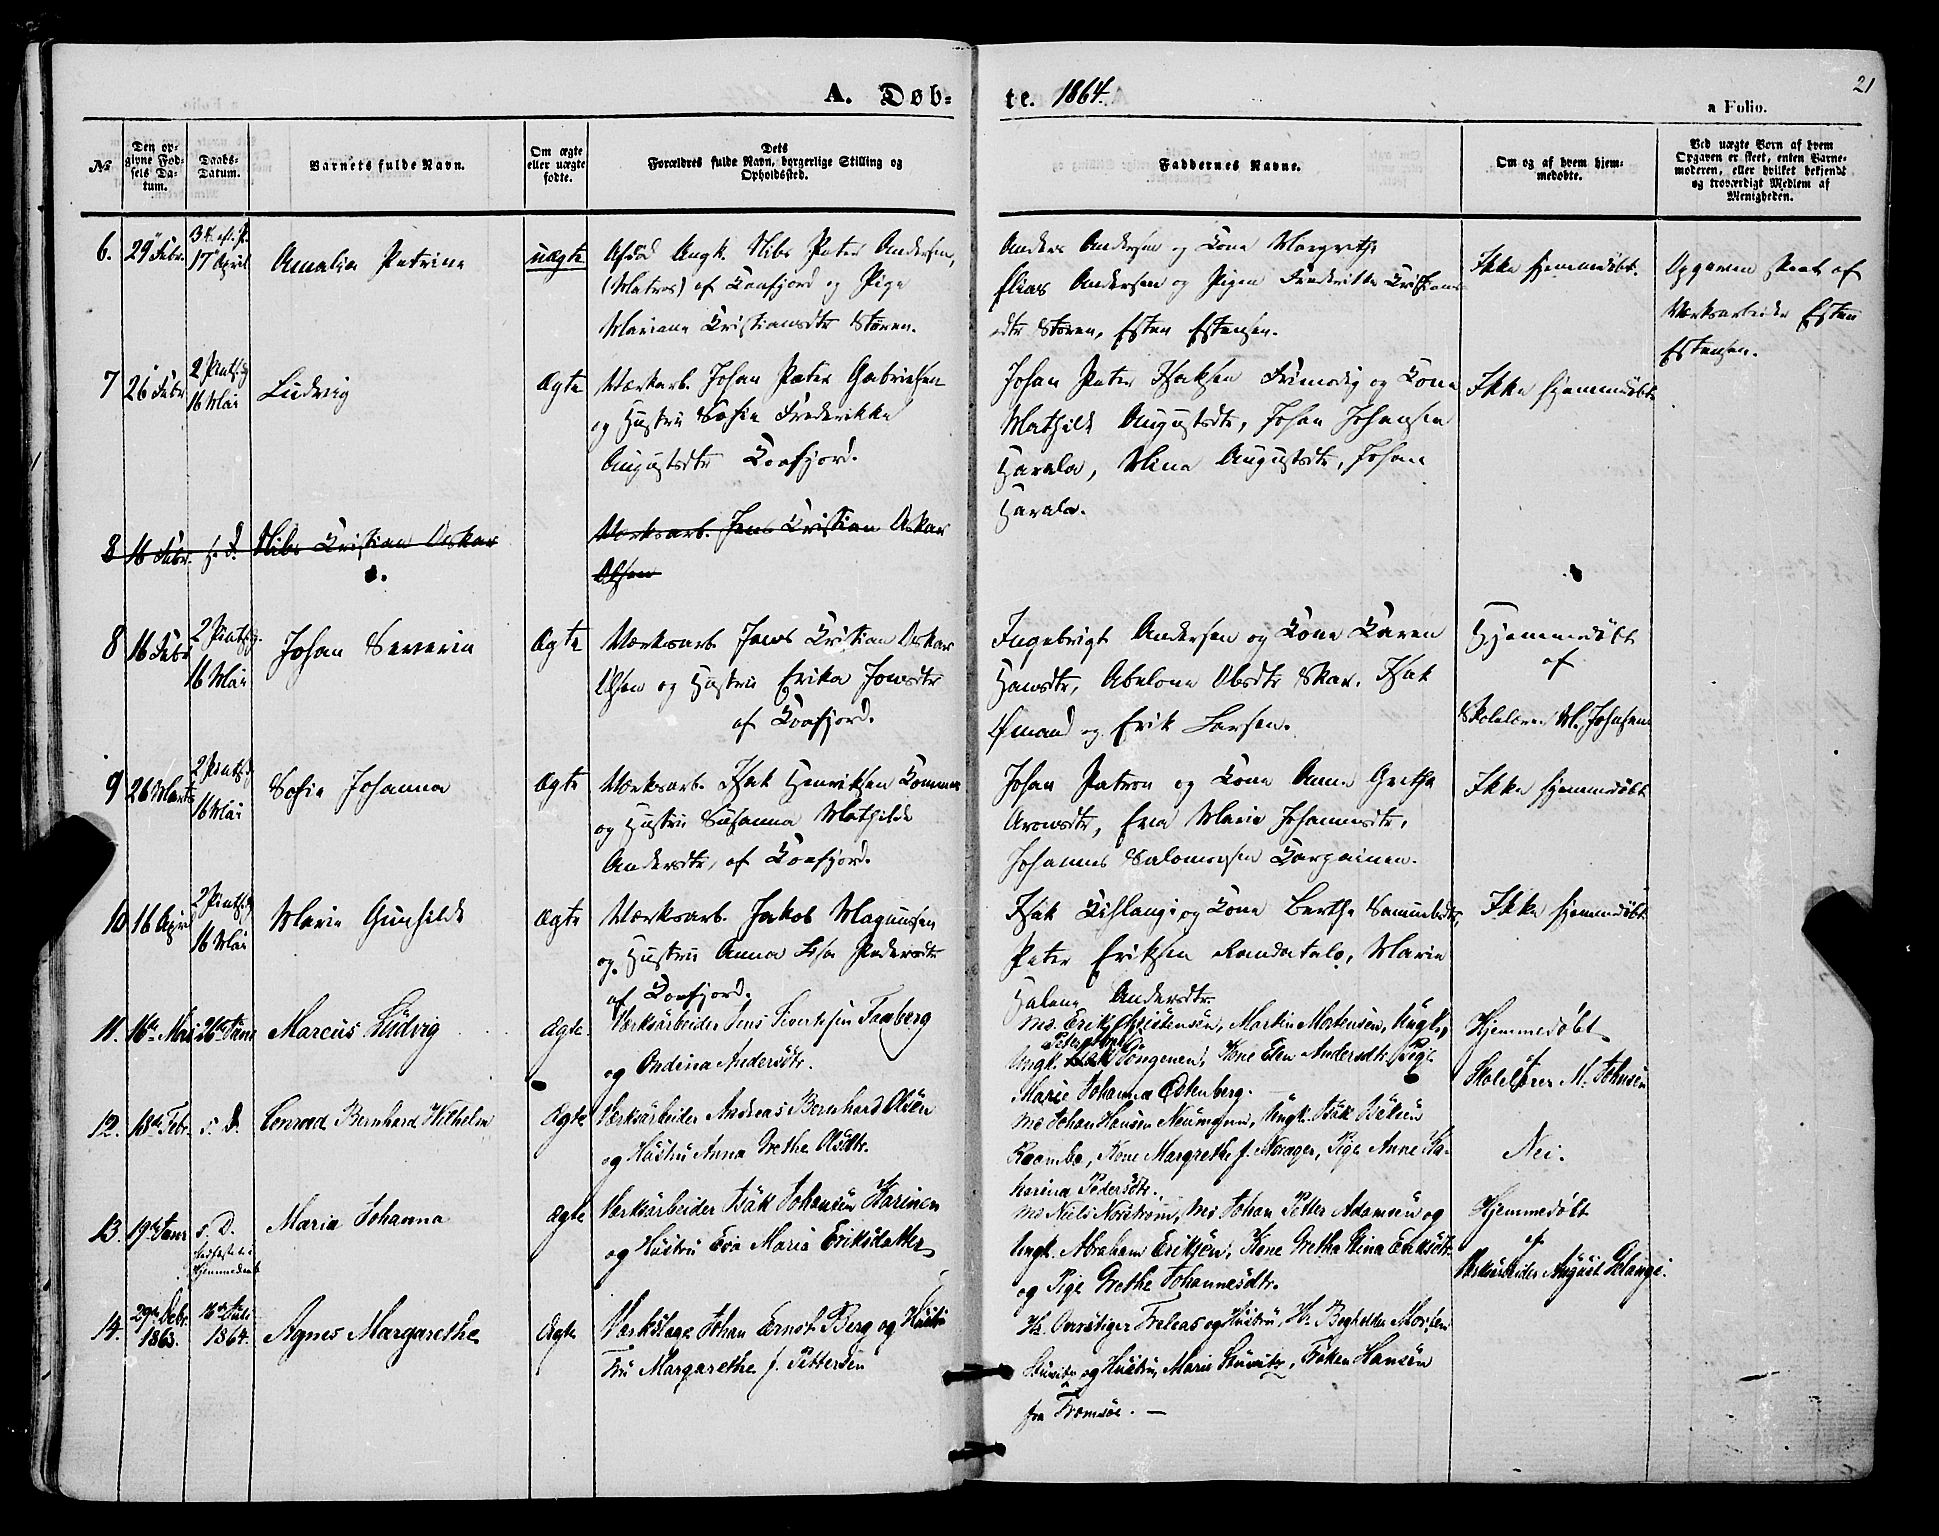 A. Døb-
te. 1864.
21
a Folio.
№
Den op-
givne Fød-
sels Da-
tum.
Daabs-
Datum.
Barnets fulde Navn.
Om ægte
eller uægte
fødte.
Dets
Forældres fulde Navn, borgerlige Stilling og
Opholdssted.
Faddernes Navne.
Om og af hvem hjem-
medøbte.
Ved uægte Børn af hvem
Opgaven er skeet, enten Barne-
moderen, eller hvilket bekjendt
og troværdigt Medlem af
Menigheden.
6. 29 Febr. 17 April Amalia Petrine uægte
Ungk. Nils Peter Andersen,
(Matros) af Kaafjord og Pige
Mariane Kristiansdtr Støren.
Anders Andersen og Kone Margrethe
Elias Andersen og Pigen Frederikke Kristians
dtr Støren, Esten Estensen.
Ikke hjemmedøbt.
Opgaven skeet af
Værksarbeider Esten
Estensen.
7 26 Febr. 2 Pintsd. 16 Mai Ludvig Ægte
Værksarb. Johan Peter Gabrielsen
og Hustru Sofie Frederikke
Augustsdtr Kaafjord.
Johan Peter Isaksen Frimodig og Kone
Mathilde Augustsdtr, Johan Johansen
Harala, Mina Augustsdtr, Johan
Harala.
Ikke hjemmedøbt
8 16 Febr. s. d. Nils Kristian Oskar
Værksarb. Jens Kristian Oskar
Olsen
8 16 Febr 2 Pintsd. 16 Mai Johan Severin Ægte
Værksarb. Jens Kristian Oskar
Olsen og Hustru Erika Jonsdtr
af Kaafjord.
Ingebrigt Andersen og Kone Karen
Hansdtr, Abelone Olsdtr Skar, Isak
Ømand og Erik Larsen.
Hjemmedøbt
af
Skolelærer M. Johnsen
9 26 Marts 2 Pintsd. 16 Mai Sofie Johanna Ægte
Værksarb. Isak Henriksen
og Hustru Susanna Mathilde
Andersdtr, af Kaafjord.
Johan Patron og Kone Anna Grethe
Aronsdtr, Eva Marie Johannesdtr,
Johannes Salomonsen Karpainen.
Ikke hjemmedøbt
10 16 April 2 Pintsd. 16 Mai Marie Gunhilde Ægte
Værksarb. Jakob Magnussen
og Hustru Anna Lisa Pedersdtr
af Kaafjord.
Isak Kislangi og Kone Berthe Samuelsdtr,
Peter Eriksen Randatalo, Marie
Helene Andersdtr.
Ikke hjemmedøbt
11. 16de Mai 26de Juni Marcus Ludvig Ægte.
Værksarbeider Jens Sivertsen Taaberg
og Ondina Andersdtr.
Md. Erik Christensen, Martin Mortensen, Ungk.,
Ungk. Kone Elen Andersdtr, Pige
Marie Johanna Østenberg.
Hjemmedøbt
Skolelærer M. Johnsen
12. 18de Febr. s. d. Conrad Bernhard Wilhelm Ægte
Værksarbeider Andreas Bernhard Olsen
og Hustru Anna Grethe Olsdtr.
Md Johan Hansen Neumann, Ungk. Isak
Kone Margrethe f. Norager, Pige Anne Ka-
harina Pedersdtr.
Nei.
13. 19de Janr s. D. Maria Johanna Ægte
Værksarbeider Isak Johansen Karinen
og Hustru Eva Maria Eriksdatter
Md Niels Nordstrøm, Md Johan Petter Adamsen og
Ungk. Abraham Eriksen, Kone Gretha Stina Eriksdtr.
og Pige Grethe Johannesdtr.
Hjemmedøbt
af
Værksarbeider August Kelangi.
14. 29de Decbr. 1863. 16de Juli 1864. Agnes Margarethe Ægte
Værkslæge Johan Ernst Berg og Hustru
Fru Margarethe f. Pettersen
Hr. og Hustru, Hr. Morten
og Hustru, Marie Frøken Hansen
fra Tromsøe. —